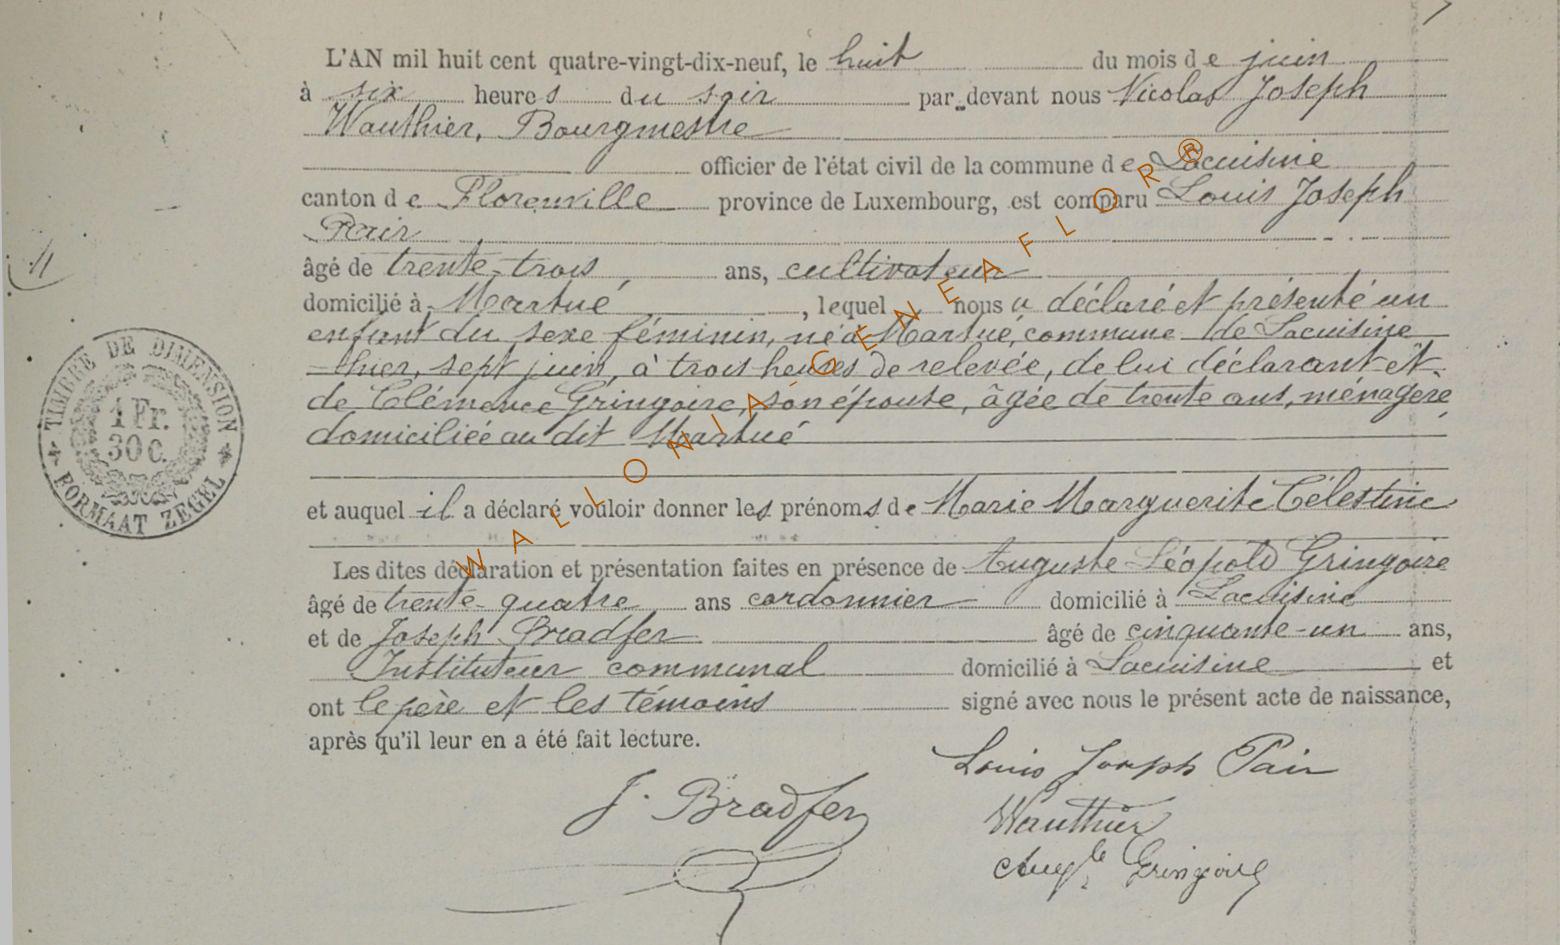 L'AN mil huit cent quatre-vingt-dix-neuf, le huit du mois de juin
à six heures du soir par-devant nous Nicolas Joseph
Wauthier, Bourgmestre
officier de l'état civil de la commune de Lacuisine
canton de Florenville province de Luxembourg, est comparu Louis Joseph
Pair
âgé de trente-trois ans, cultivateur
domicilié à Martué, lequel nous a déclaré et présenté un
enfant du sexe féminin, né à Martué, commune de Lacuisine
hier, sept juin, à trois heures de relevée, de lui déclarant et
de Clémence Gringoire, son épouse, âgée de trente ans, ménagère
domiciliée au dit Martué
et auquel il a déclaré vouloir donner les prénoms de Marie Marguerite Célestine
Les dites déclaration et présentation faites en présence de Auguste Léopold Gringoire
âgé de trente-quatre ans cordonnier domicilié à Lacuisine
et de Joseph Bradfer âgé de cinquante-un ans,
Instituteur communal domicilié à Lacuisine et
ont le père et les témoins signé avec nous le présent acte de naissance,
après qu'il leur en a été fait lecture.
Louis Joseph Pair
J. Bradfer
Wauthier
Augte Gringoire
11
TIMBRE DE DIMENSION
1 Fr.
30 C.
FORMAAT ZEGEL
WALLONIA-GENEAFLOR®